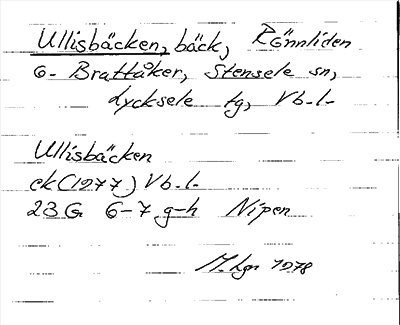 Ullisbäcken, bäck, Rönnliden
6- Brattåker, Stensele sn,
Lycksele tg, Vb.l.
Ullisbäcken
ek (1977) Vb.l.
23G 6-7 g-h Nipen
M.hgn 1978